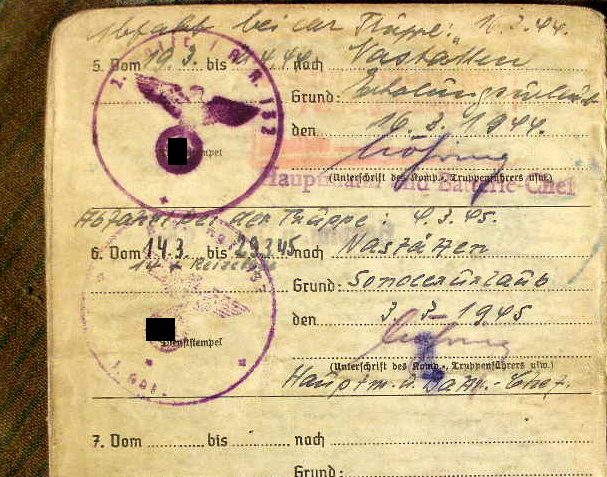 Abfahrt bei der Truppe: 10.3.44.
5. Vom 19.3. bis 4.44 nach Nastätten
Grund: Erholungsurlaub
den 16.3.1944.
(Unterschrift des Komp.-, Truppenführers usw.)
Hauptmann und Batterie-Chef
Abfahrt bei der Truppe: 9.3.45.
6. Vom 14.3. bis 29.3.45 nach Nastätten
14 + Reisetage
Grund: Sonderurlaub
den 3.3.1945
Dienststempel
(Unterschrift des Komp.-, Truppenführers usw.)
Hauptm. u. Batt.-Chef.
7. Vom bis nach
Grund: